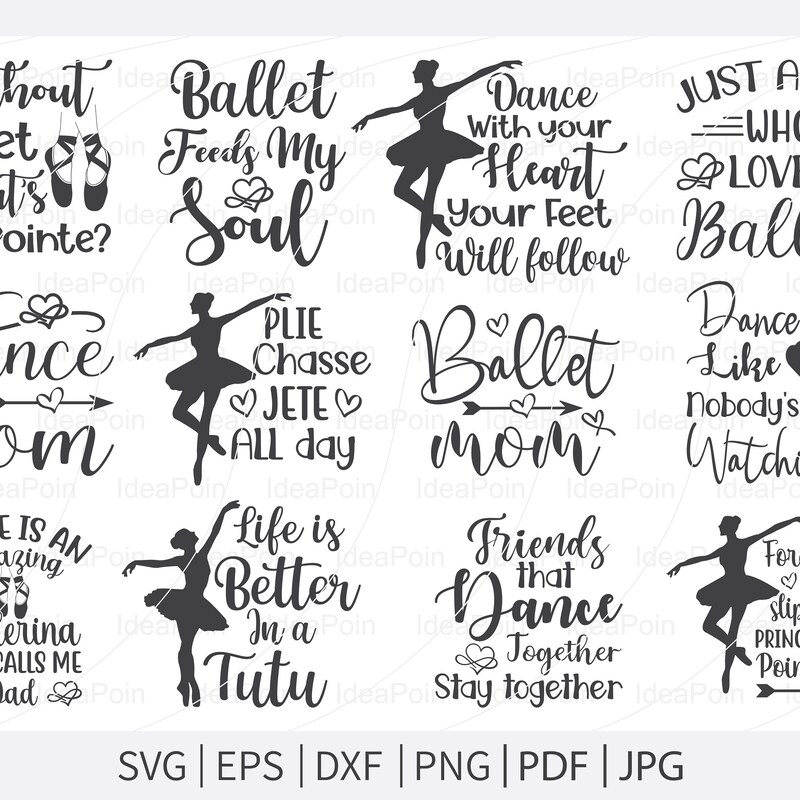 thout
et
at's
Pointe?
Ballet
Feeds My
Soul
Dance
With your
Heart
Your Feet
Will follow
JUST A
WHO
LOVE
Ball
nce
om
PLIE
Chasse
JETE
ALL day
Ballet
mom
Dance
Like
Nobody's
Watchi
E IS AN
azing
lerina
CALLS ME
Dad
Life is
Better
In a
Tutu
Friends
that
Dance
Together
Stay together
For
slip
PRINC
Poin
SVG | EPS | DXF | PNG | PDF | JPG
IdeaPoin